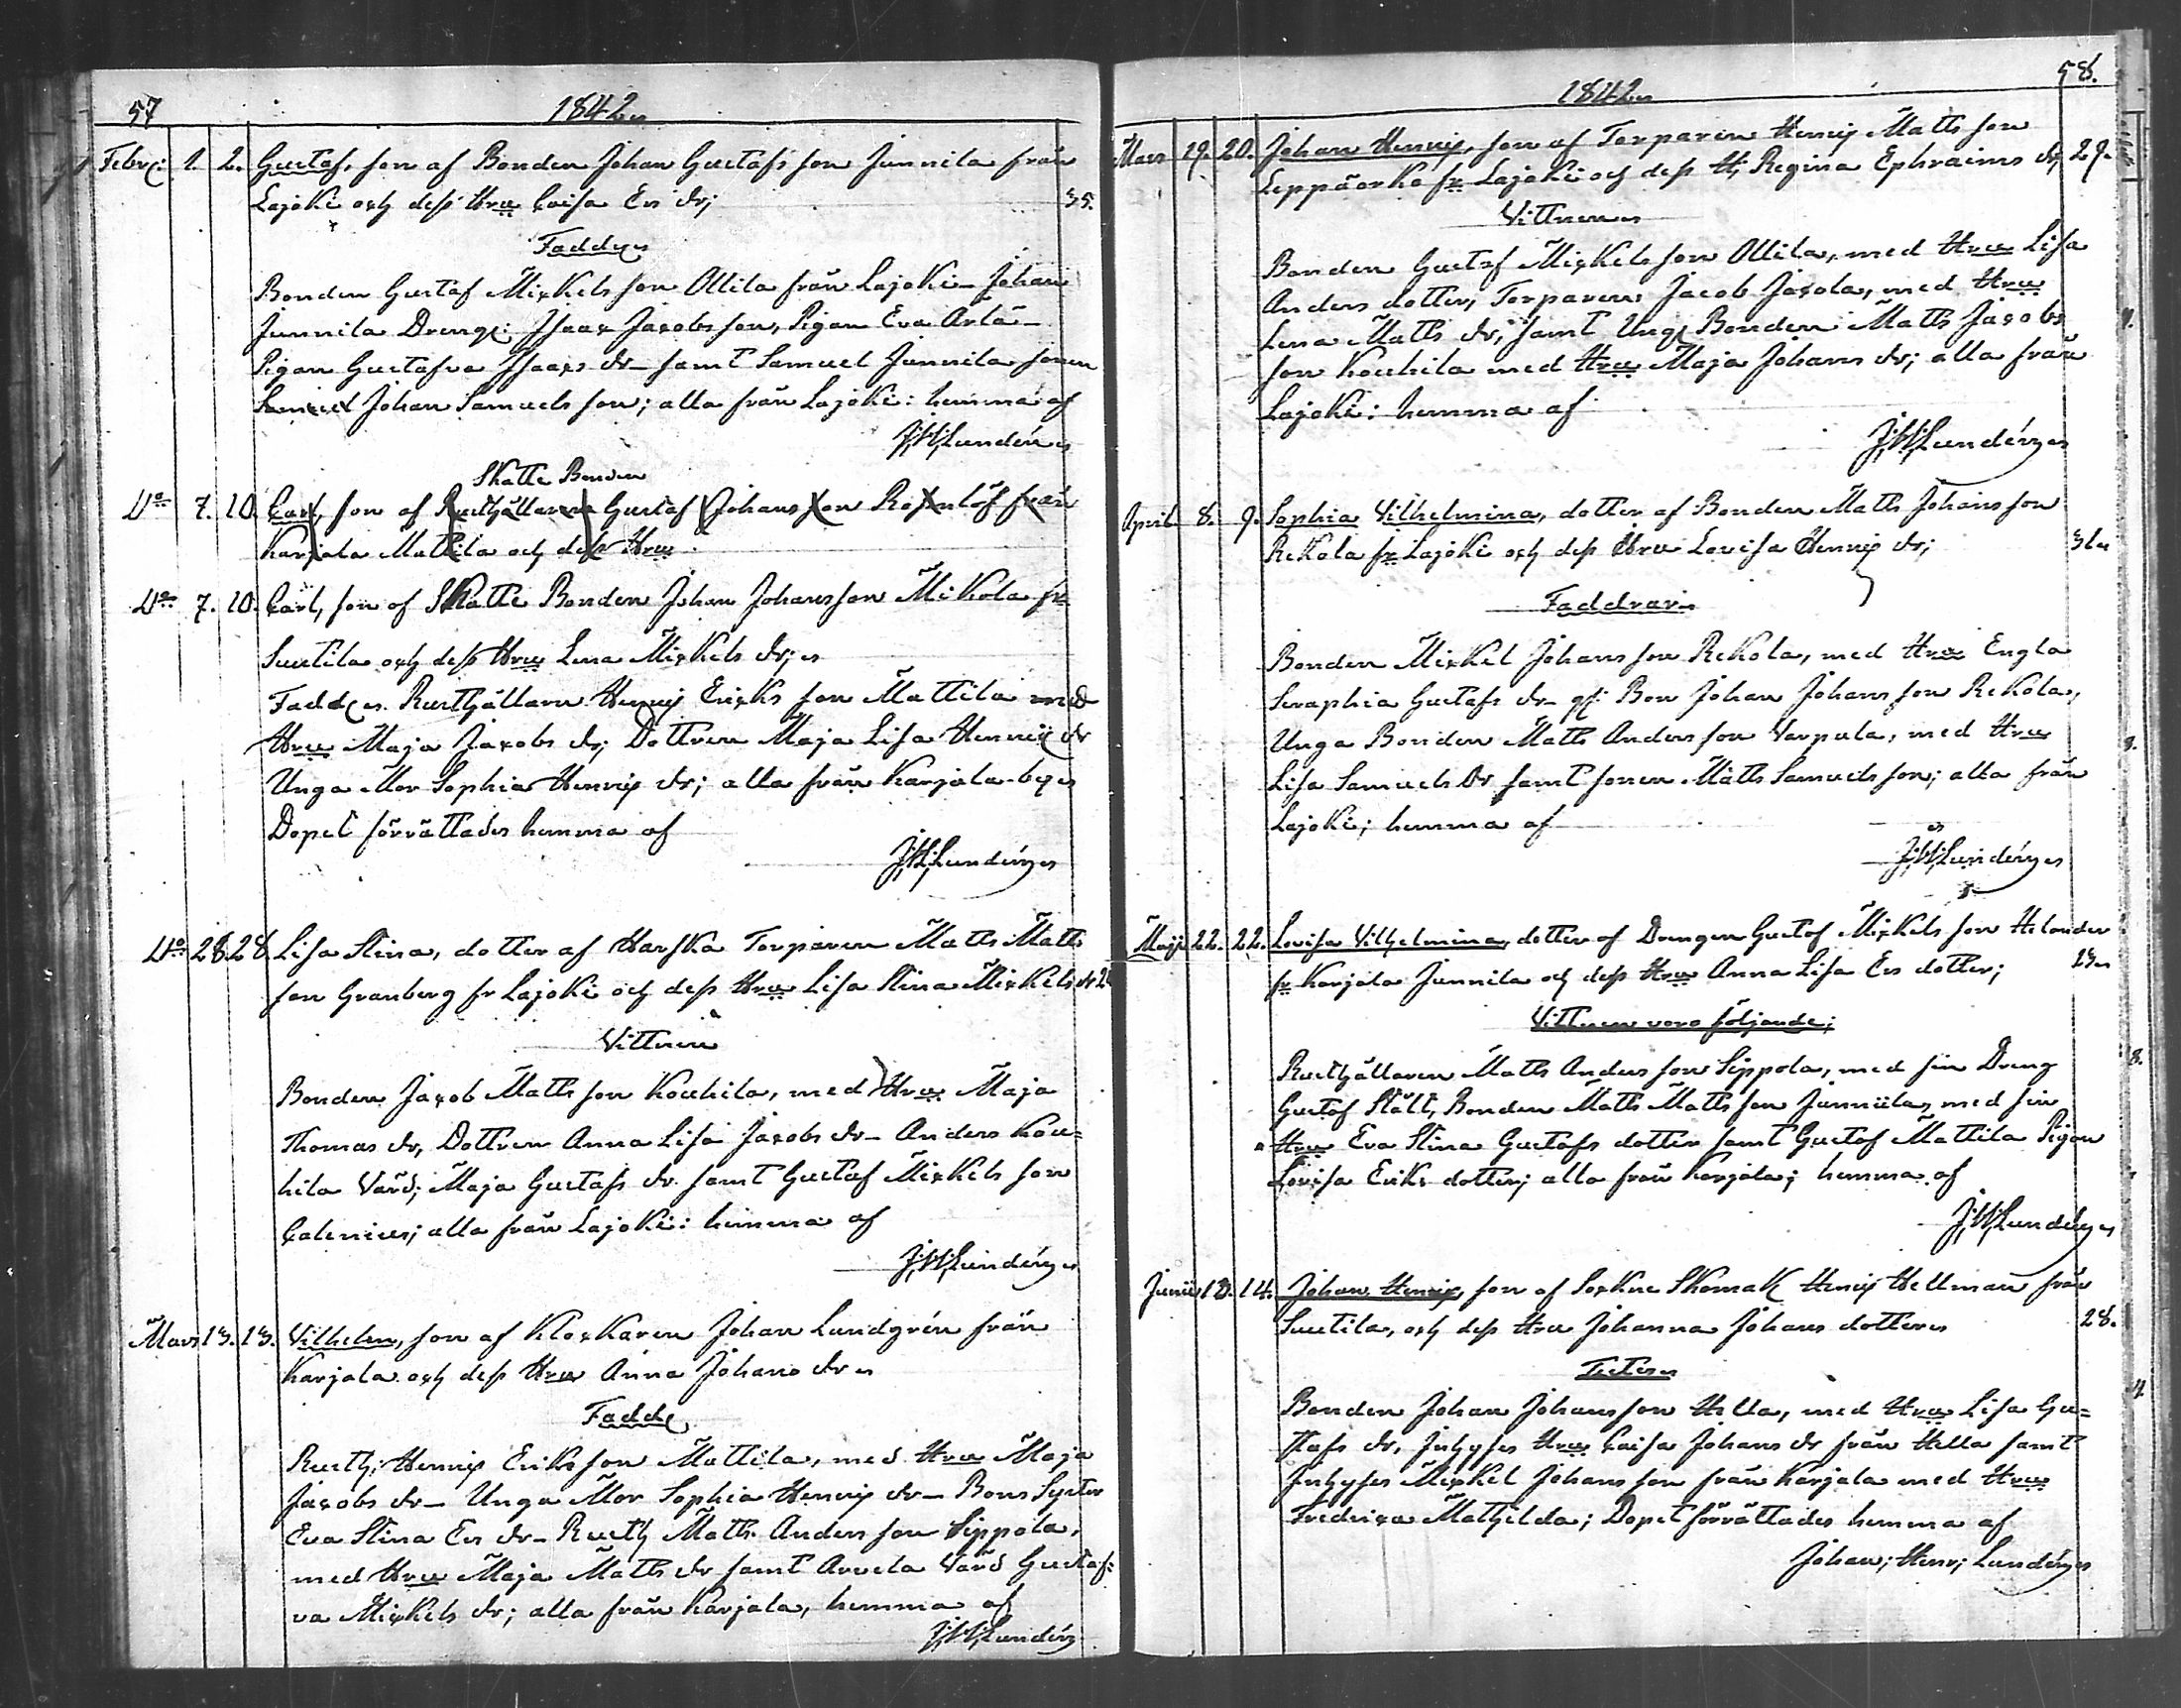 57
1842
Febr: 1. 2. Gustaf, son af Bonden Johan Gustafs son Junnila från
Lajoki och dess Hru Caisa Er dr; 35.
Fadd
Bonden Gustaf Mickels son Ollila från Lajoki – Johan
Junnila Dreng: Isaac Jacobs son, Pigan Eva Arla –
Pigan Gustafva Isaacs dr – samt Samuel Junnila sonen
Samuel Johan Samuels son; alla från Lajoki: hemma af
J:H:Lundén
Skatte Bonden
Do 7. 10. Carl, son af Rusthållaren Gustaf Johans son från
Karjala Mattila och dess Hru
Do 7. 10. Carl, son af Skatte Bonden Johan Johans son Mikola fr
Suutila och dess Hru Lena Mickels dr;
Fadd Rusthållarn Henric Ericks son Mattila med
Hru Maja Jacobs dr; Dottren Maja Lisa Henric dr
Unga Mor Sophia Henric dr; alla från Karjala by
Dopet förrättades hemma af
J:H:Lundén
Do 28. 28. Lisa Stina, dotter af Torparen Matts Matts
son Granberg fr Lajoki och dess Hru Lisa Stina Mickels dr
Vittnen
Bonden Jacob Matts son Kouhila, med Hru Maja
Thomas dr, Dottren Anna Lisa Jacobs dr – Anders Kou=
hila Värd; Maja Gustafs dr samt Gustaf Mickels son
Calenius; alla från Lajoki: hemma af
J:H:Lundén
Mars 13. 13. Vilhelm, son af Klockaren Johan Lundgrén från
Karjala och dess Hru Anna Johans dr
Fadd
Rusth: Henric Ericks son Mattila, med Hru Maja
Jacobs dr – Unga Mor Sophia Henric dr – Bons Syster
Eva Stina Er dr – Rusth Matts Anders son Sippola,
med Hru Maja Matts dr samt Arvela Värd Gustaf:
va Mickels dr; alla från Karjala, hemma af
J:H:Lundén
58.
1842
Mars 19. 20. Johan Henric, son af Torparen Henric Matts son
Leppäorko fr Lajoki och dess H; Regina Ephraims dr, 29.
Vittnen
Bonden Gustaf Mickels son Ollila, med Hru Lisa
Anders dotter, Torparen Jacob Jacola, med Hru
Lena Matts dr, samt Unge Bonden Matts Jacobs
son Kouhila med Hru Maja Johans dr; alla från
Lajoki: hemma af
J:H:Lundén
April 8. 9. Sophia Vilhelmina, dotter af Bonden Matts Johans son
Rekola fr Lajoki och dess Hru Lovisa Henric dr;
Faddrar
Bonden Mickel Johans son Rekola, med Hru Engla
Seraphia Gustafs dr – Bon Johan Johans son Rekola,
Unga Bonden Matts Anders son Varpula, med Hru
Lisa Samuels dr samt sonen Matts Samuels son; alla från
Lajoki; hemma af
J:H:Lundén
Maji 22. 22. Lovisa Vilhelmina, dotter af Drengen Gustaf Mickels son Helander
fr Karjala Junnila och dess Hru Anna Lisa Ers dotter;
Vittnen voro följande;
Rusthållaren Matts Anders son Sippola, med sin Dreng
Gustaf Stält, Bonden Matts Matts son Junnila, med sin
Hru Eva Stina Gustafs dotter samt Gustaf Mattila Pigan
Lovisa Ericks dotter; alla från Karjala; hemma af
J:H:Lundén
Junii 13. 14. Johan Henric, son af Sockne Skomak Henric Hellman från
Suutila, och dess Hru Johanna Johans dotter 28.
Testes
Bonden Johan Johans son Hella, med Hru Lisa Gu=
stafs dr, Inhyses Hru Caisa Johans dr från Hella samt
Inhyses Mickel Johans son från Karjala med Hru
Fredrica Mathilda; Dopet förrättades hemma af
Johan; Henr; Lundén